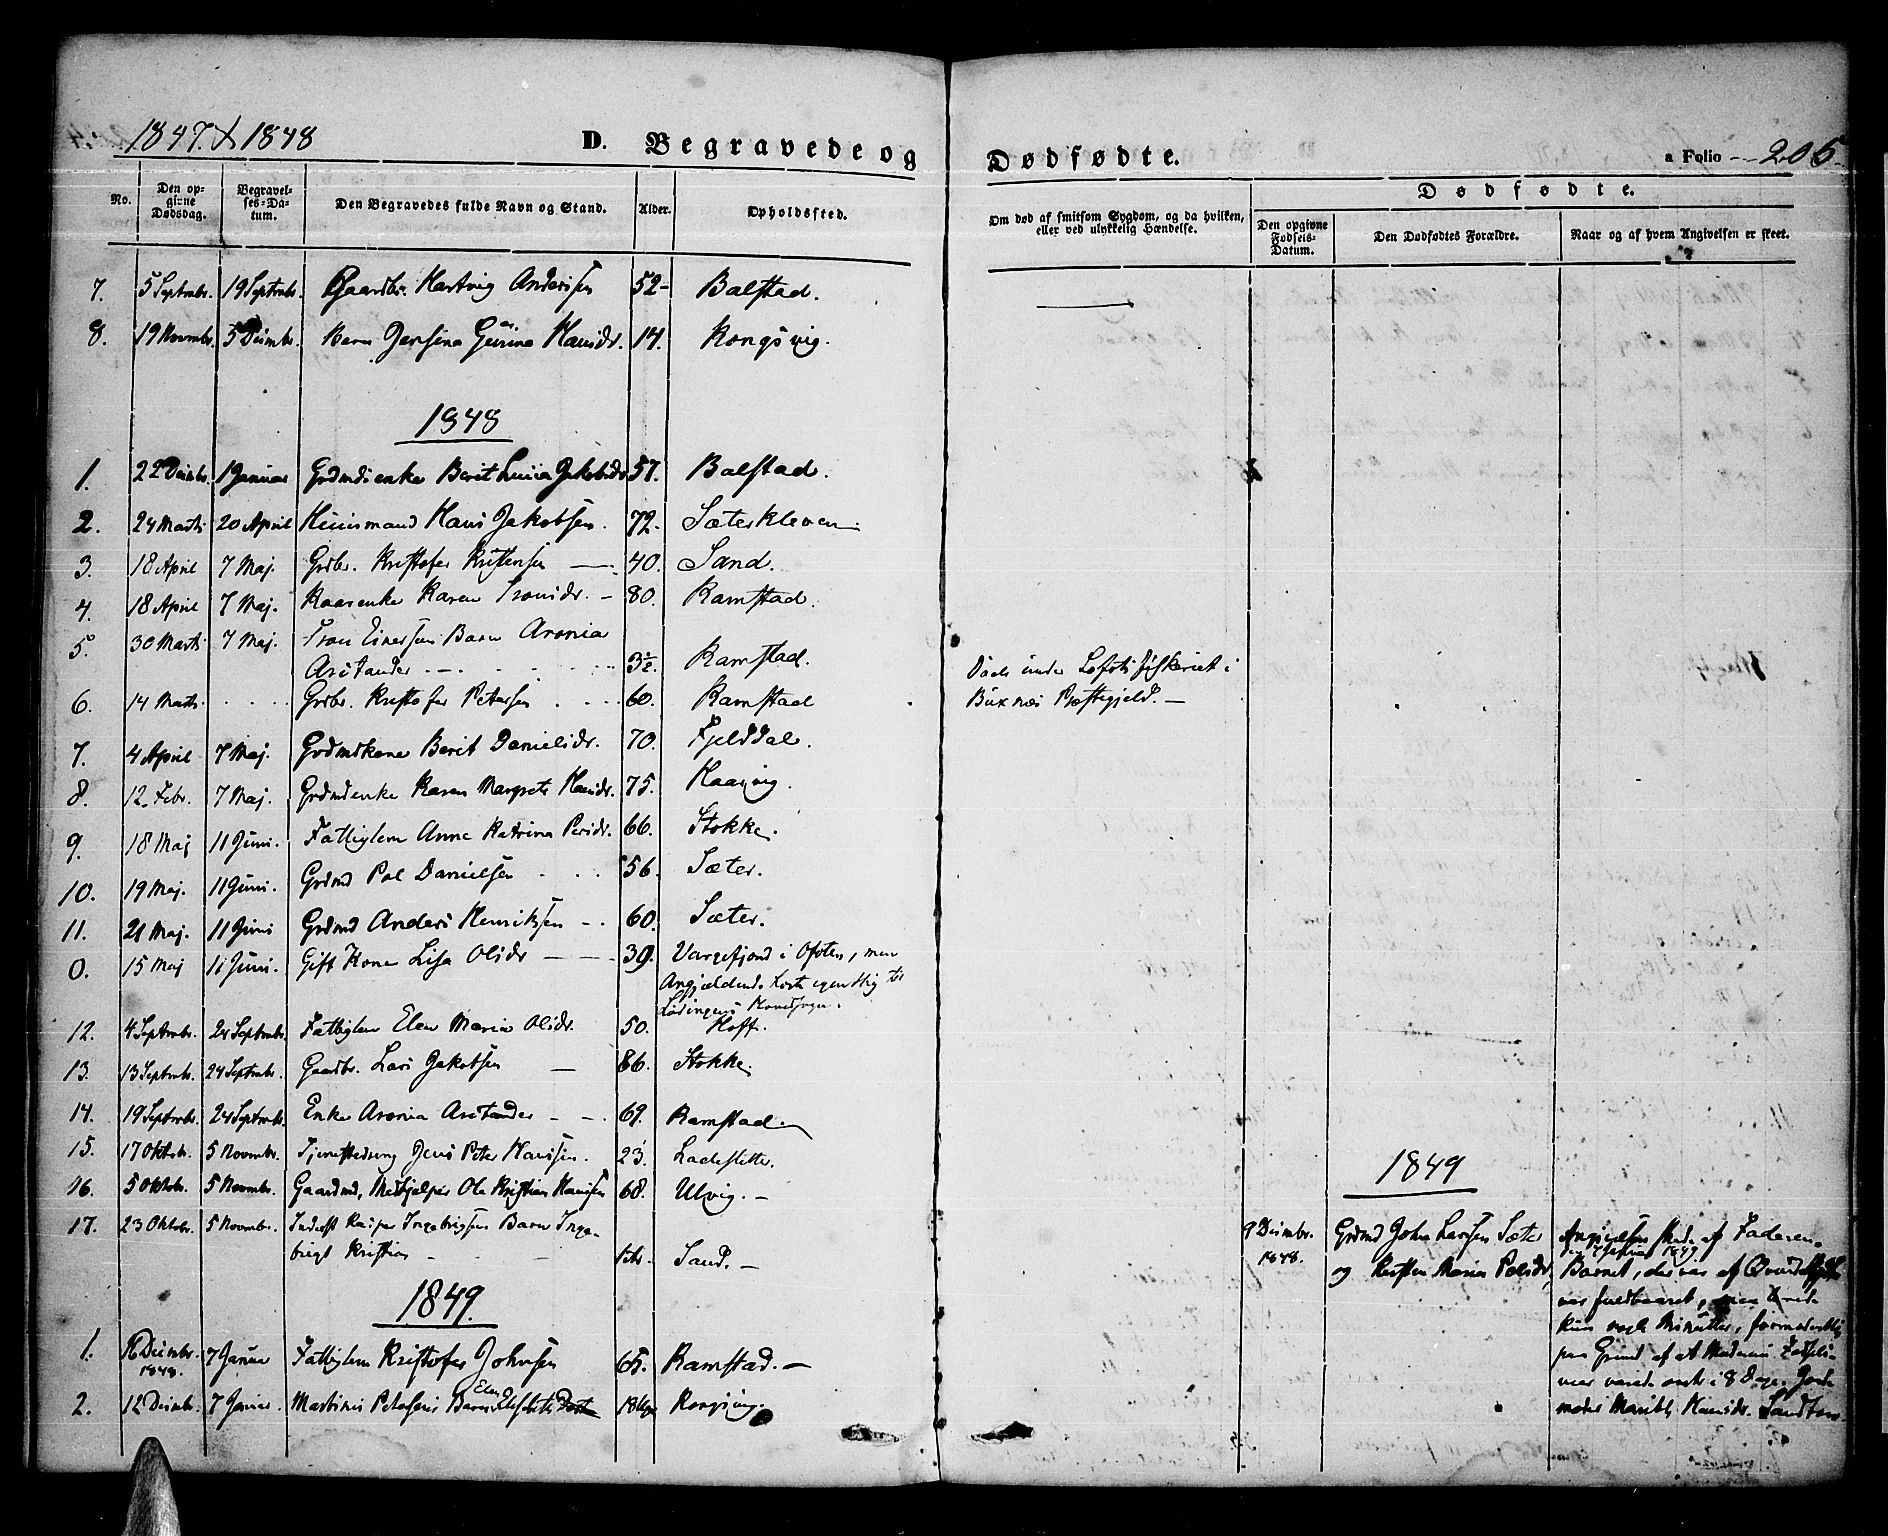 1847 & 1848
D. Begravede og
Dødfødte.
a Folio 205.
No.
Den opgivne Dødsdag.
Begravelses-Datum.
Den Begravedes fulde Navn og Stand.
Alder.
Opholdssted.
Om død af smitsom Sygdom, og da hvilken, eller ved ulykkelig Hændelse.
Dødfødte.
Den opgivne Fødsels-Datum.
Den Dødfødtes Forældre.
Naar og af hvem Angivelsen er skeet.
7. 5 Septmbr. 19 Septmbr. Gaardbr. Hartvig Andersen 52 Balstad.
8. 19 Novmbr. 5 Desmbr. Barn Jensina Hansdr. 14. Kongsvig.
1848
1. 22 Desmbr. 1 Januar Grdmdsenke Berit Lucia Jakobsdr 57. Balstad.
2. 24 Marts 20 April Huusmand Hans Jakobsen. 72. Sæterkleven
3. 18 April 7 Maj. Grdbr. Kristofer Kristensen 40. Sand.
4. 18 April 7 Maj. Kaarenke Karen Tronsdr. 80. Ramstad.
5. 30 Marts 7 Maj. Tron Einersens Barn Aronia
Arctander 3½. Ramstad.
6. 14 Marts Grdbr. Kristofer Petersen 60. Ramstad
Døde under Lofotsfiskeriet i
Buxnæs Præstegjeld.
7. 4 April 7 Maj. Grdmdkone Berit Danielsdr. 70. Fjelddal.
8. 12. Febr. 7 Maj. Grdmdenke Karen Margrete Hansdr. 75. Haarvig.
9. 18 Maj 11 Juni. Fattiglem Anne Katrina Persdr. 66. Stokke.
10. 19 Maj. 11 Juni. Grdmd Pol Danielsen 56. Sæter.
11. 21 Maj. 11 Juni Grdmd Anders Henriksen 60. Sæter.
0. 15 Maj 11 Juni. Gift Kone Lisa Olsdr 39. Vargefjord i Ofoten, men
Angjældende hørte egentlig til
Lødingens Hovedsogn.
12. 4 Septmbr. 24 Septmbr. Fattiglem Elen Maria Olsdr. 50. Hoff.
13. 13 Septmbr. 24 Septmbr. Gaardbr. Lars Jakobsen 86. Stokke.
14. 19 Septmbr. 24 Septmbr. Enke Aronia Arctander 69. Ramstad.
15. 17 Oktobr. 5 Novmbr. Tjenestedreng Jens Peter Hansen. 23. Ladesletta.
16. 5 Oktobr. 5 Novmbr. Gaardmd, Medhjelper Ole Kristian Hansen 68. Ulvig.
17. 23 Oktobr. 5 Novmbr. Inderst Kasper Ingebrigtsens Barn Inge-
brigt Kristian Sand.
1849.
1. 16 Desmbr. 1848. 7 Januar Fattiglem Kristofer Johnsen 65. Ramstad.
2. 12 Desmbr. 7 Januar Martinus Petersens Barn Elen Elisabeth Kongsvig.
1849
9 Desmbr. 1848.
Grdmd John Larsen Sæter
og Kirsten Maria Polsdr.
Angivelsen skede af Faderen
den 7 Januar 1849.
Barnet, der var af Qvindekjøn
var fuldbaaret, men levede
kun nogle Minutter, formodentlig
paa Grund af at Moderens Fødsels-
veer varede omtr. i 8 Dage. Jorde-
moder Marith Hansdr. Sandtorv